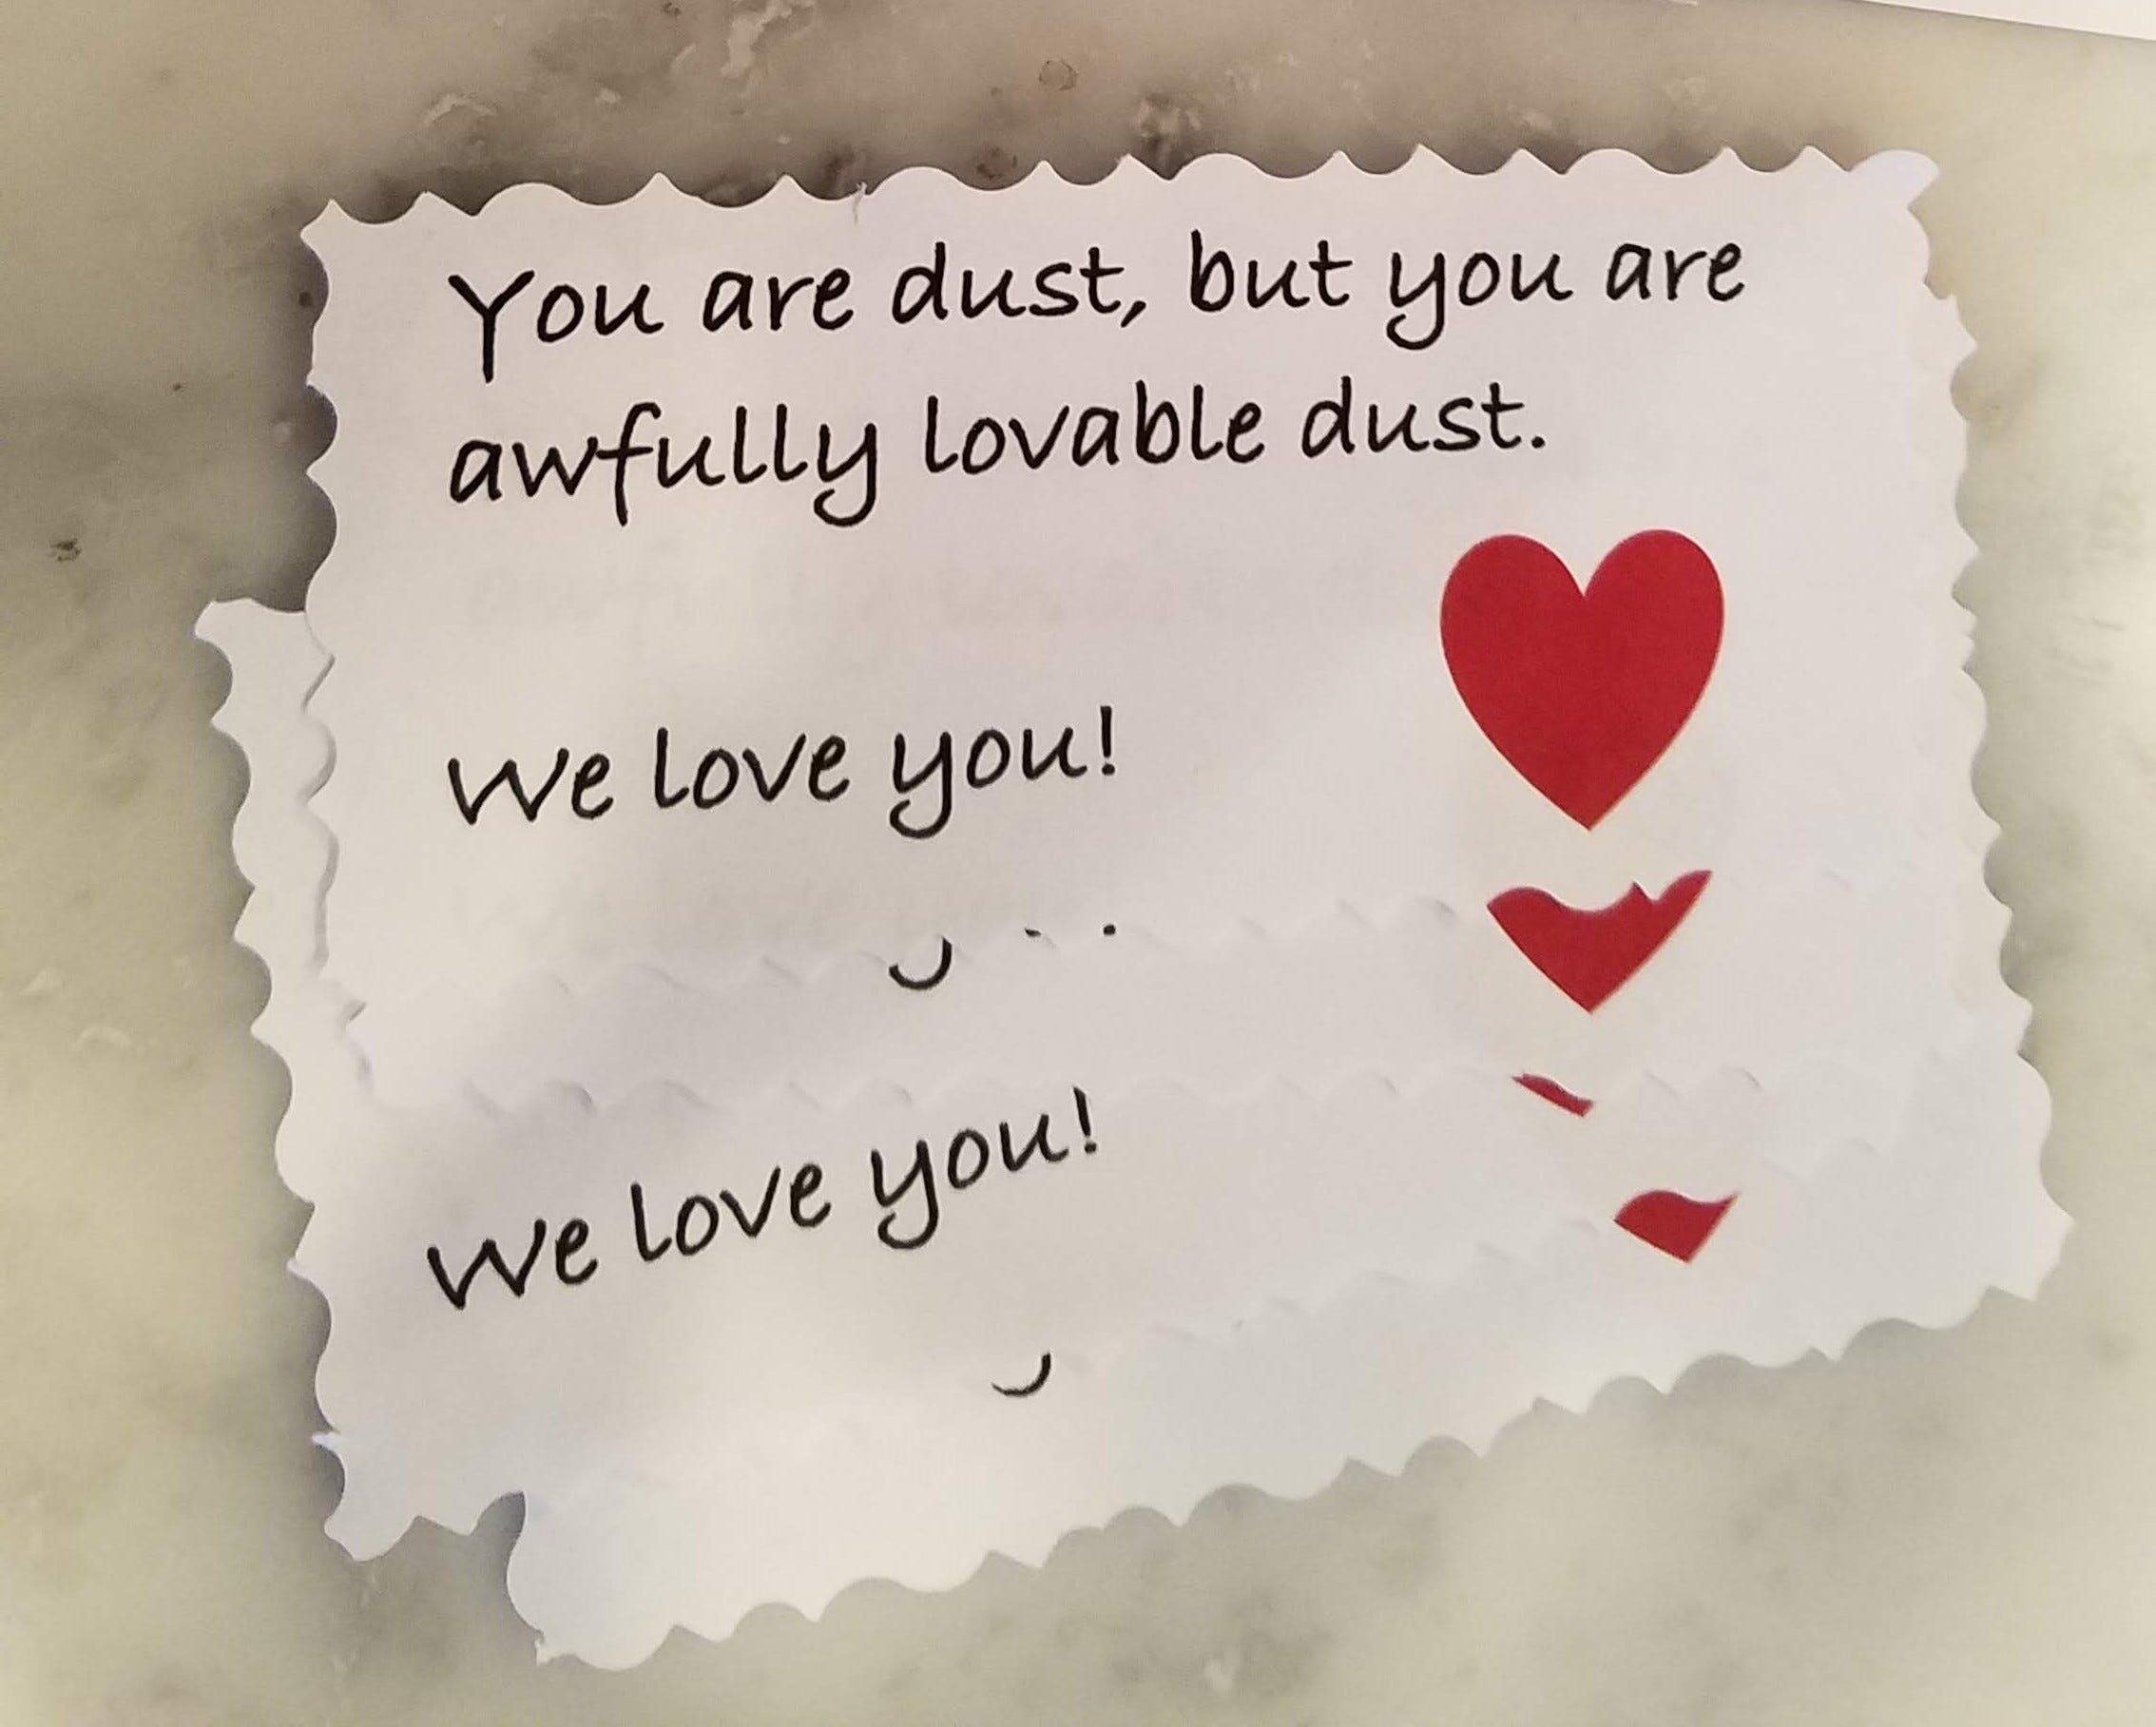 You are dust, but you are
awfully lovable dust.
We love you!
We love you!